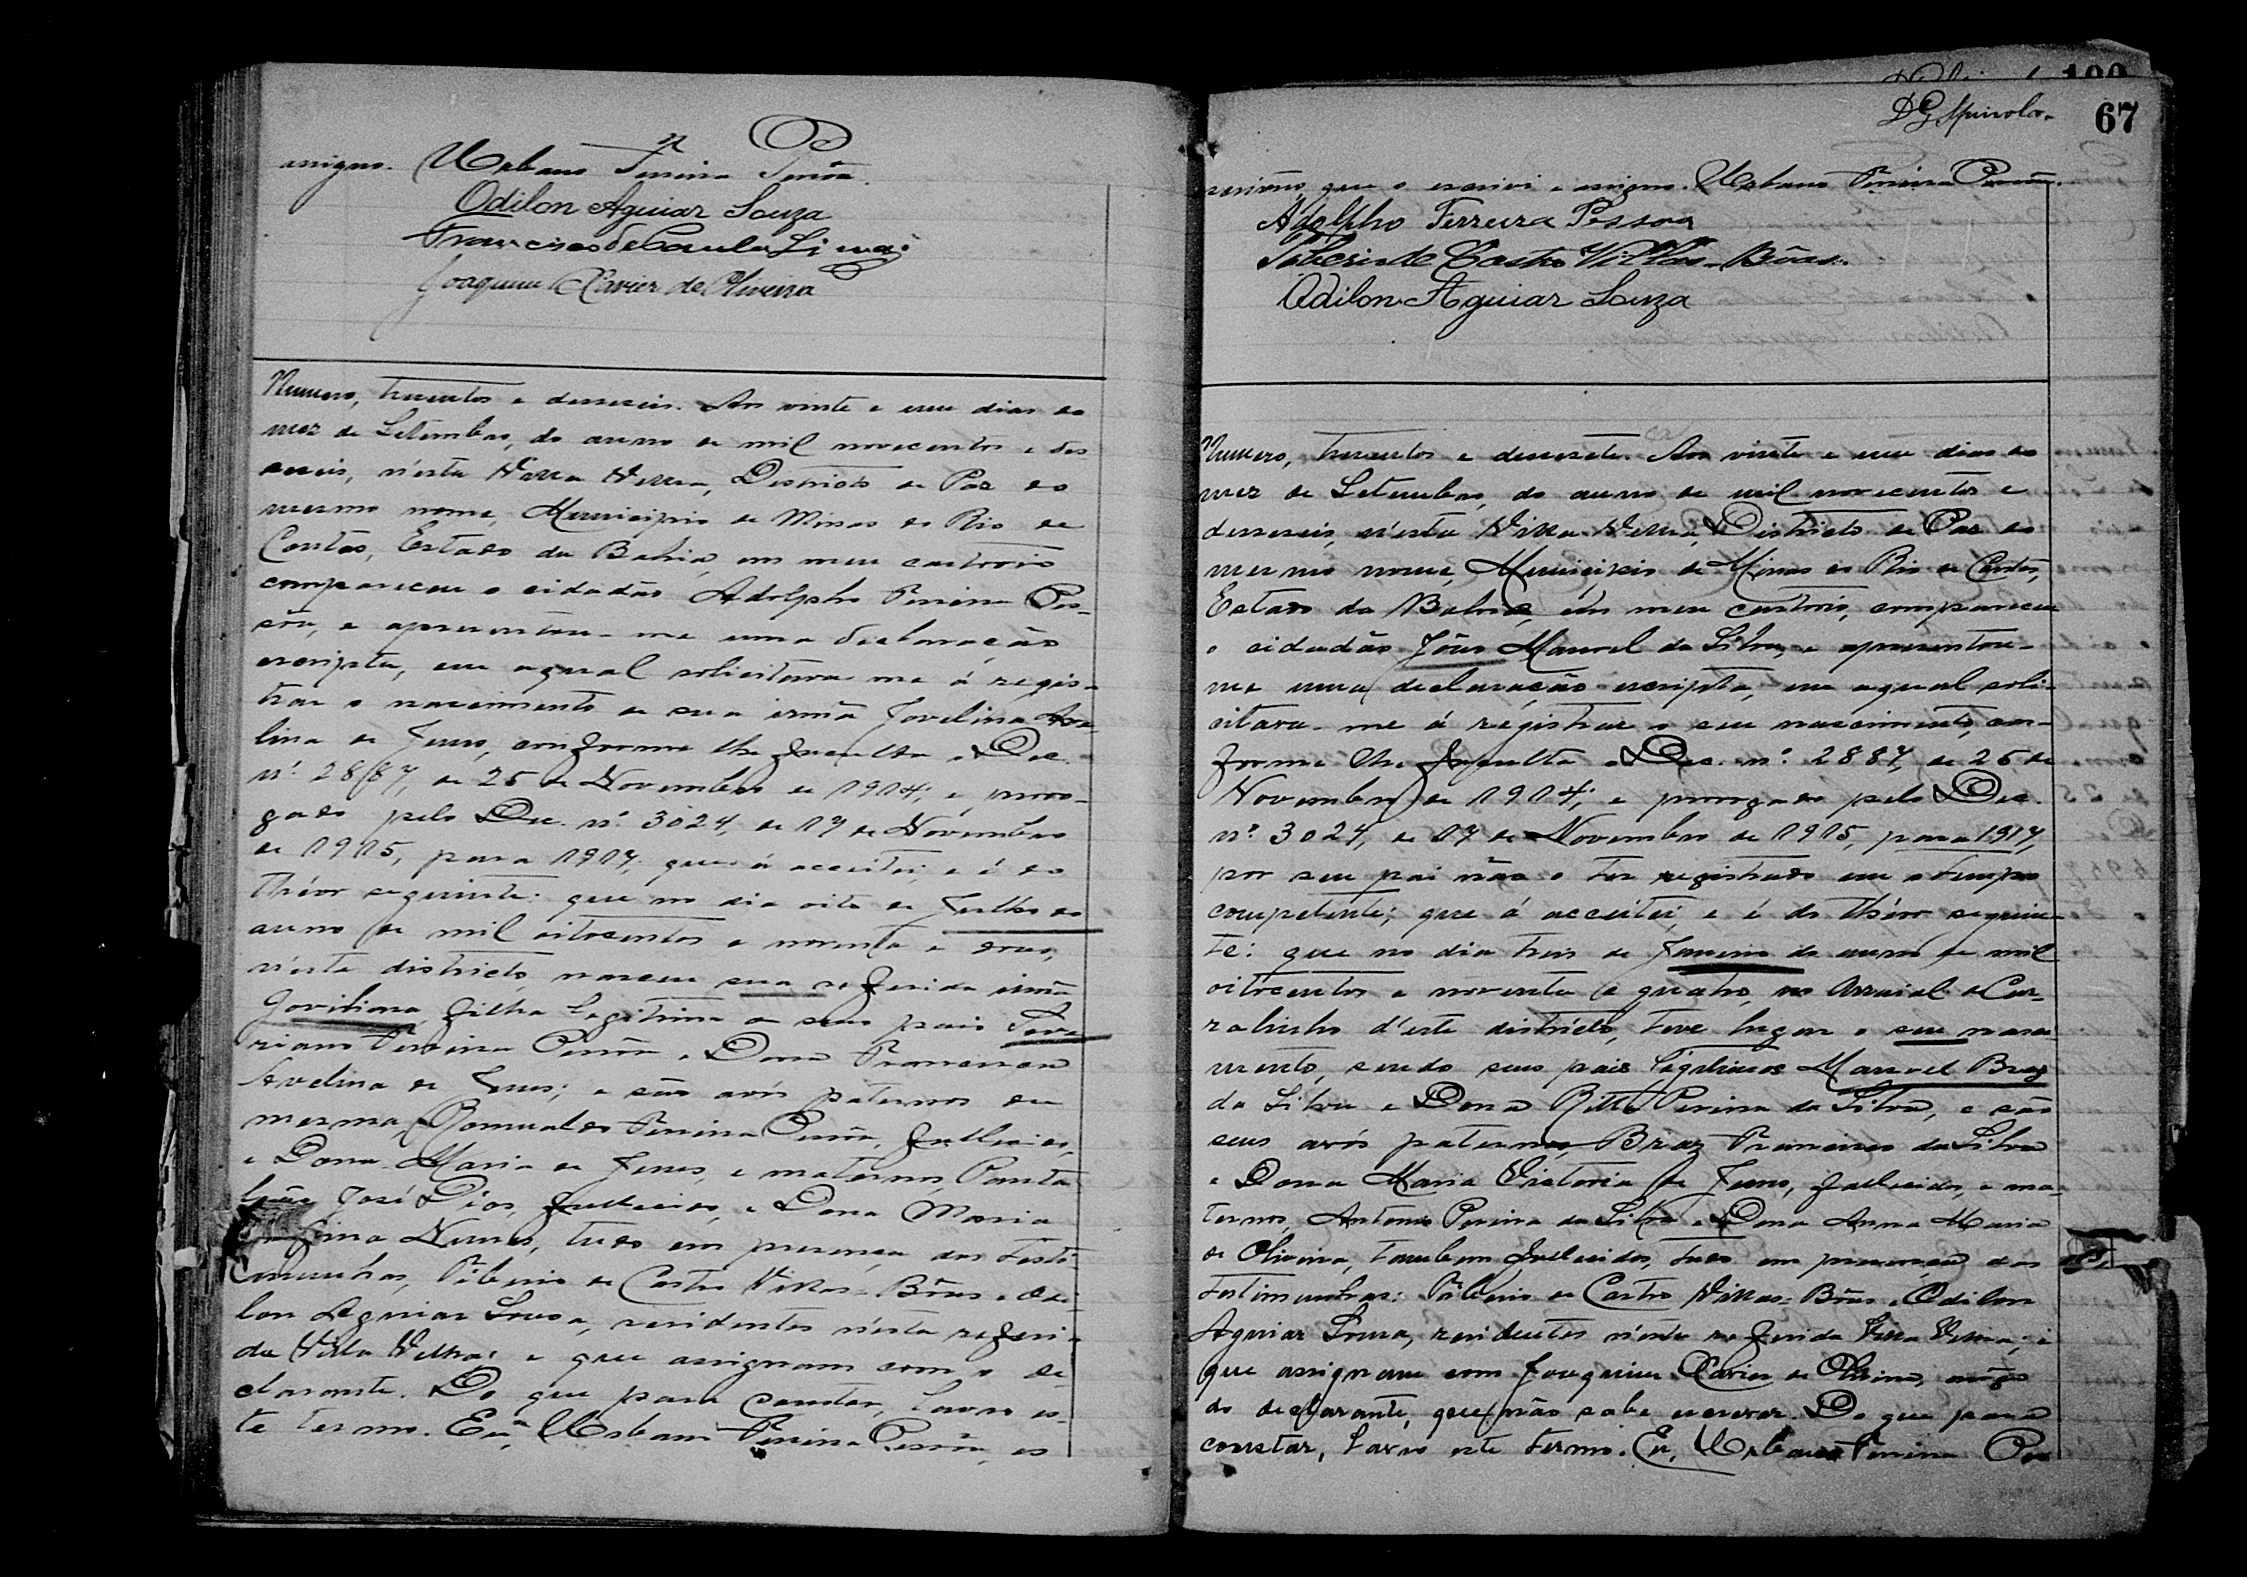 assigno. Urbano Ferreira Pessôa.
Odilon Aguiar Souza
Francisco de Paula Lima
Joaquim Xavier de Oliveira
Numero, trezentos e dezeseis. Aos vinte e um dias do
mez de Setembro, do anno de mil novecentos e des
eseis, n'esta Villa Velha, Districto de Paz do
mesmo nome, Municipio de Minas do Rio de
Contas, Estado da Bahia, em meu cartorio
compareceu o cidadão Adolpho Ferreira Pes-
sôa, e apresentou-me uma declaração
escripta, em a qual solicitava-me á regis-
trar o nascimento de sua irmã Jovelina Ave
lina de Jesus, conforme lhe faculta o Dec.
nº. 2887, de 25 de Novembro de 1914; e proro-
gado pelo Dec. nº. 3024, de 17 de Novembro
de 1915, para 1917, que á acceitei, e é do
théor seguinte: que no dia oito de Julho do
anno de mil oitocentos e noventa e dous,
n'este districto, nasceu sua referida irmã
filha legitima de seus pais
riano Ferreira Pessôa e Dona Francisca
Avelina de Jesus; e são avós paternos da
mesma, Romualdo Ferreira Pessôa, fallecido,
e Dona Maria de Jesus, e maternos, Panta
leão José Dias, fallecido, e Dona Maria
Nunes, tudo em presença das teste
munhas, Tiberio de Castro Villas-Bôas e Odi
lon Aguiar Souza, residentes n'esta referi-
da Villa Velha; e que assignam com o de
clarante. Do que para constar, lavro es-
te termo. Eu, Urbano Ferreira Pessôa, es
67
D G Spinola.
crivão, que o escrivi e assigno. Urbano Ferreira Pessôa.
Adolpho Ferreira Pessoa
Tiberio de Castro Villas-Bôas.
Odilon Aguiar Souza
Numero, trezentos e dezesete. Aos vinte e um dias do
mez de Setembro, do anno de mil novecentos e
dezeseis, n'esta Villa Velha, Districto de Paz do
mesmo nome, Municipio de Minas do Rio de Contas,
Estado da Bahia, em meu cartorio, compareceu
o cidadão João Manoel da Silva, e apresentou-
me uma declaração escripta, em a qual soli-
citava-me á registrar o seu nascimento, con-
forme lhe faculta o Dec. nº. 2887, de 25 de
Novembro de 1914; e prorogado pelo Dec.
nº. 3024, de 17 de Novembro de 1915, para 1917,
por seu pai não o ter registrado em o tempo
competente; que á acceitei, e é do théor seguin-
te: que no dia tres de Janeiro do anno de mil
oitocentos e noventa e quatro, no Arraial de Cur-
ralinho d'este districto, teve lugar o seu nasci
mento, sendo seus pais legitimos Manoel Braz
da Silva e Dona Ritta Pereira da Silva, e são
seus avós paternos, Braz Francisco da Silva
e Dona Maria Victoria de Jesus, fallecidos, e ma-
ternos, Antonio Pereira da Silva e Dona Anna Maria
de Oliveira, tambem fallecidos, tudo em presença das
testemunhas: Tiberio de Castro Villas-Bôas e Odilon
Aguiar Souza, residentes n'esta referida Villa Velha; e
que assignam com Joaquim Xavier de Oliveira, a rôgo
do declarante, que não sabe escrever. Do que para
constar, lavro este termo. Eu, Urbano Ferreira Pes